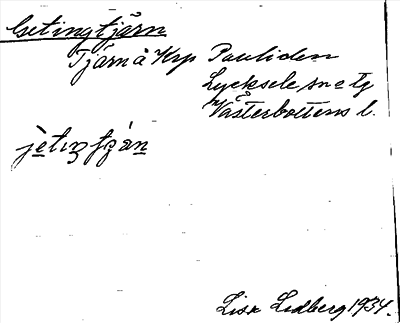 Getingtjärn
Tjärn å Krp Pauliden
Lycksele sn o tg
Västerbottens l.
jètıŋtʒàn
Lisa Lidberg 1934.